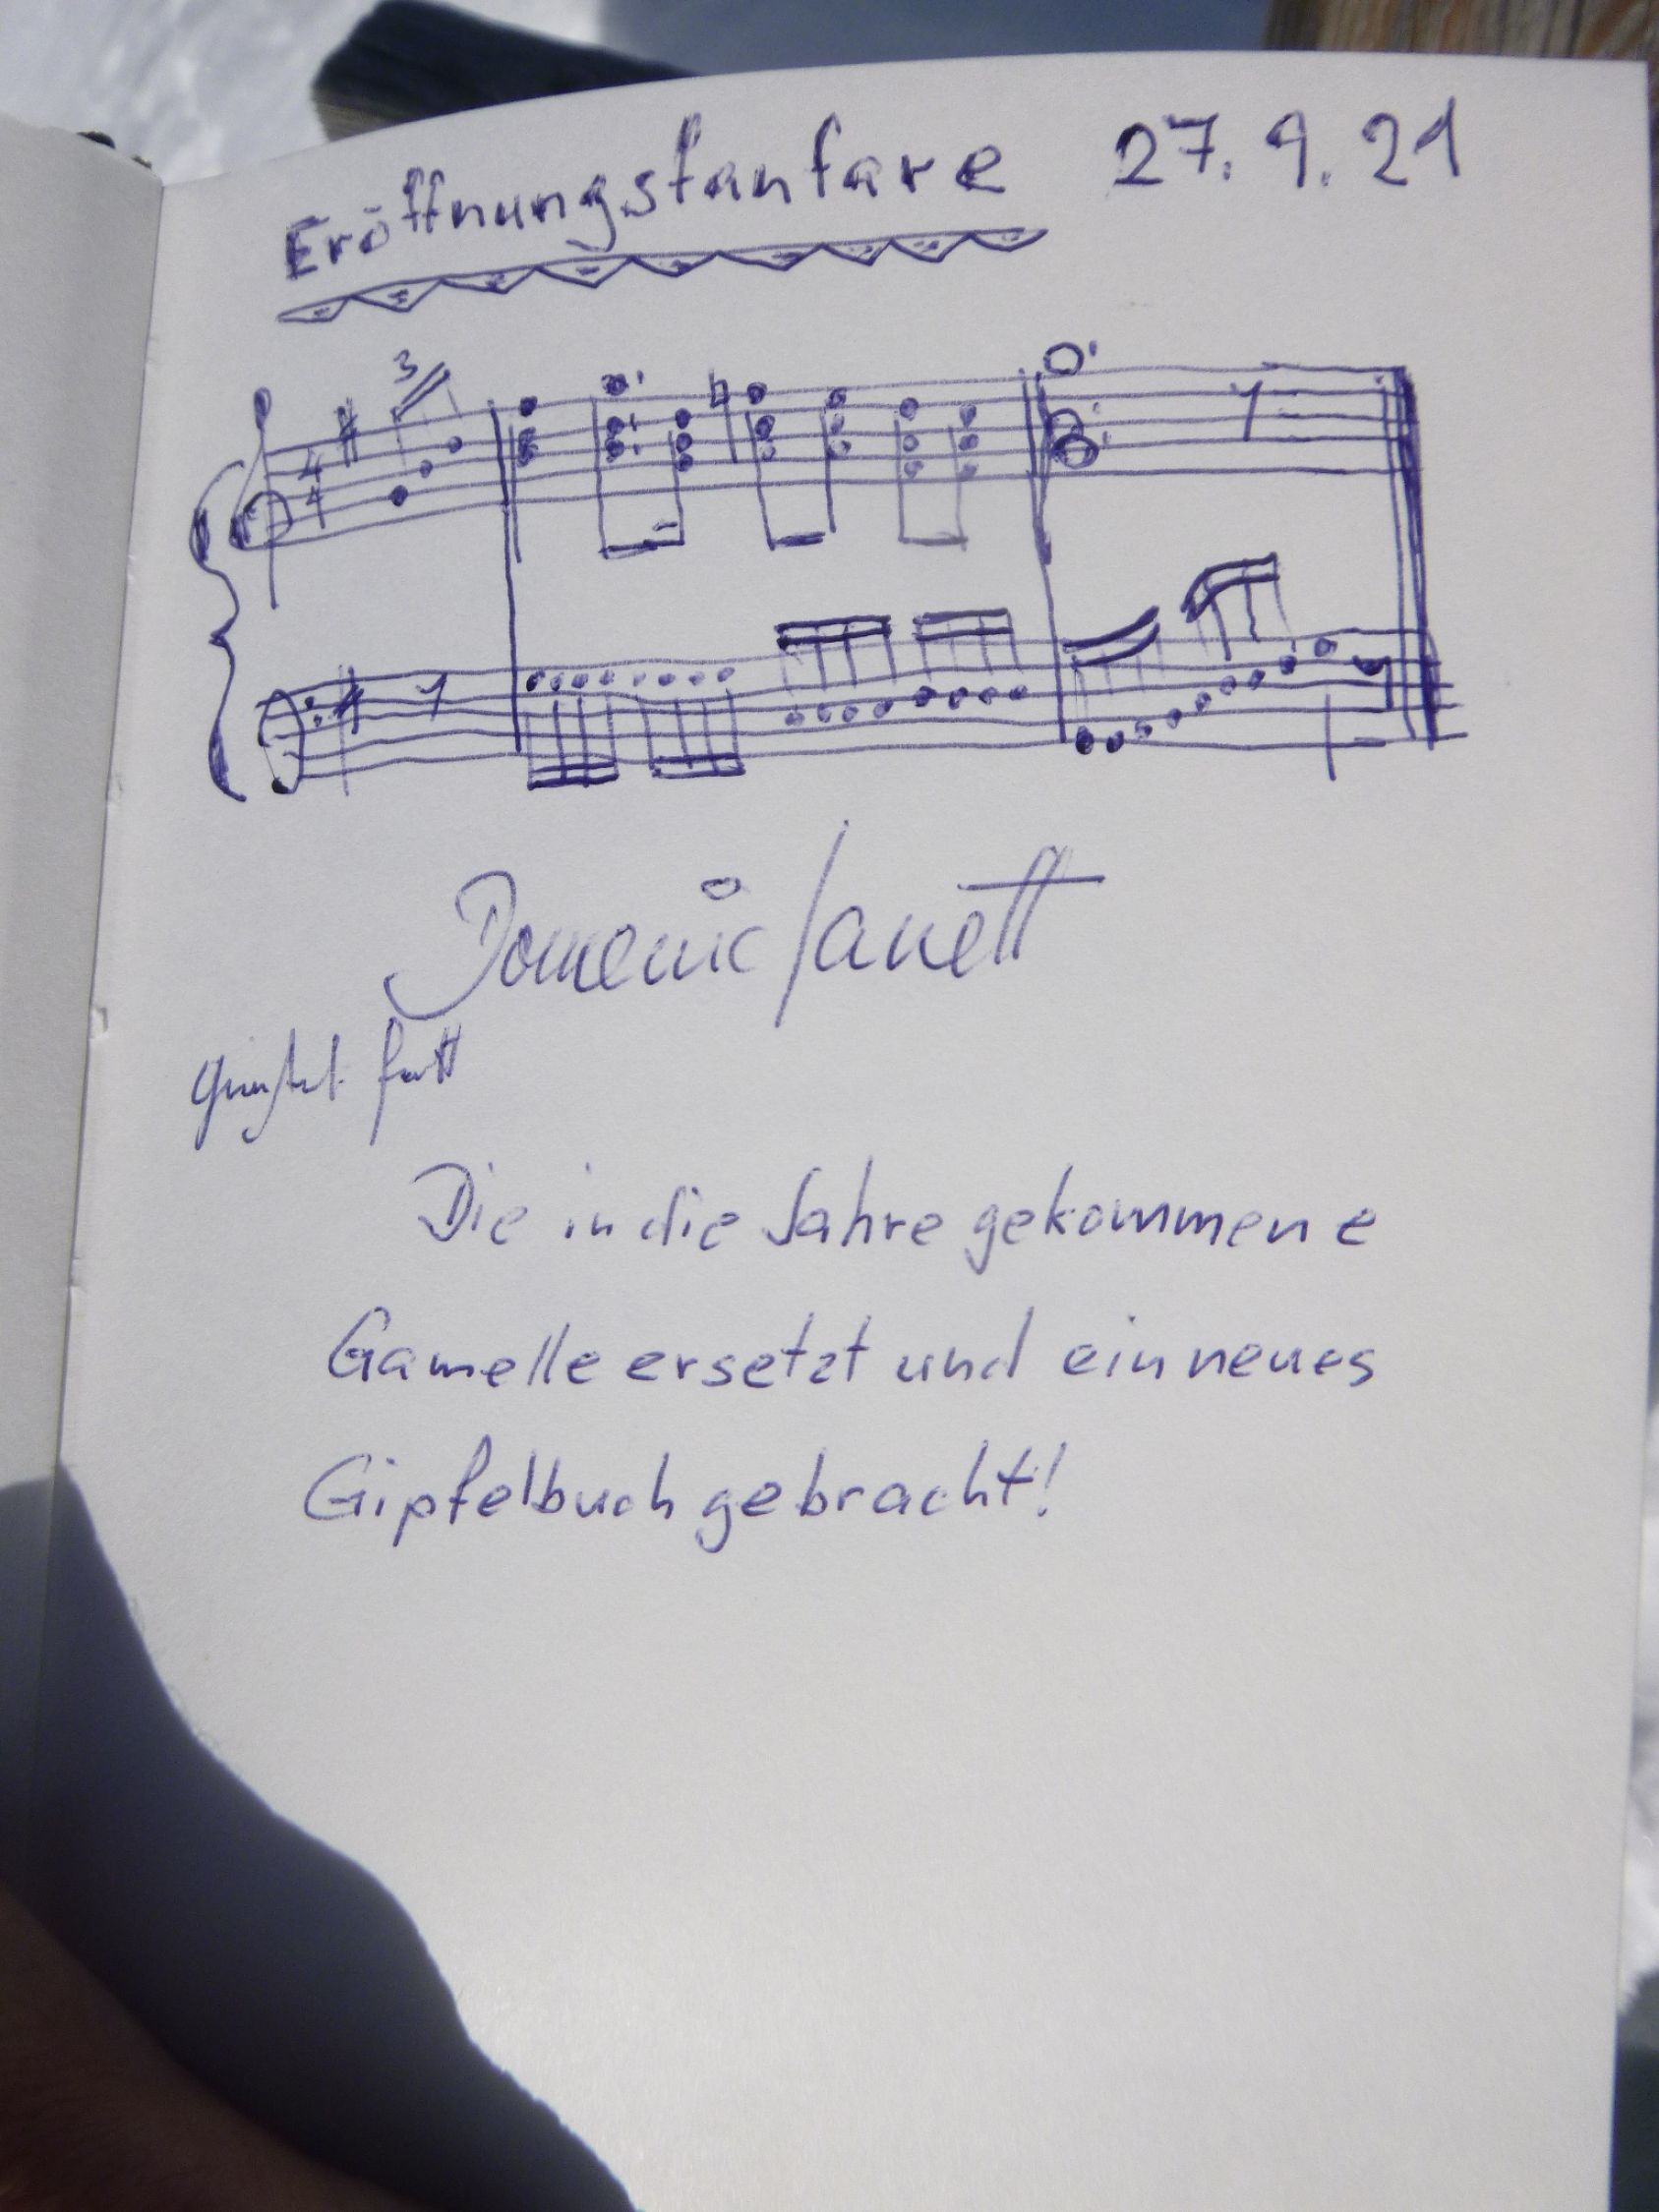 Eröffnungsfanfare 27.9.21
3
4
4
Domenic Janett
Die in die Jahre gekommene
Gamelle ersetzt und ein neues
Gipfelbuch gebracht!